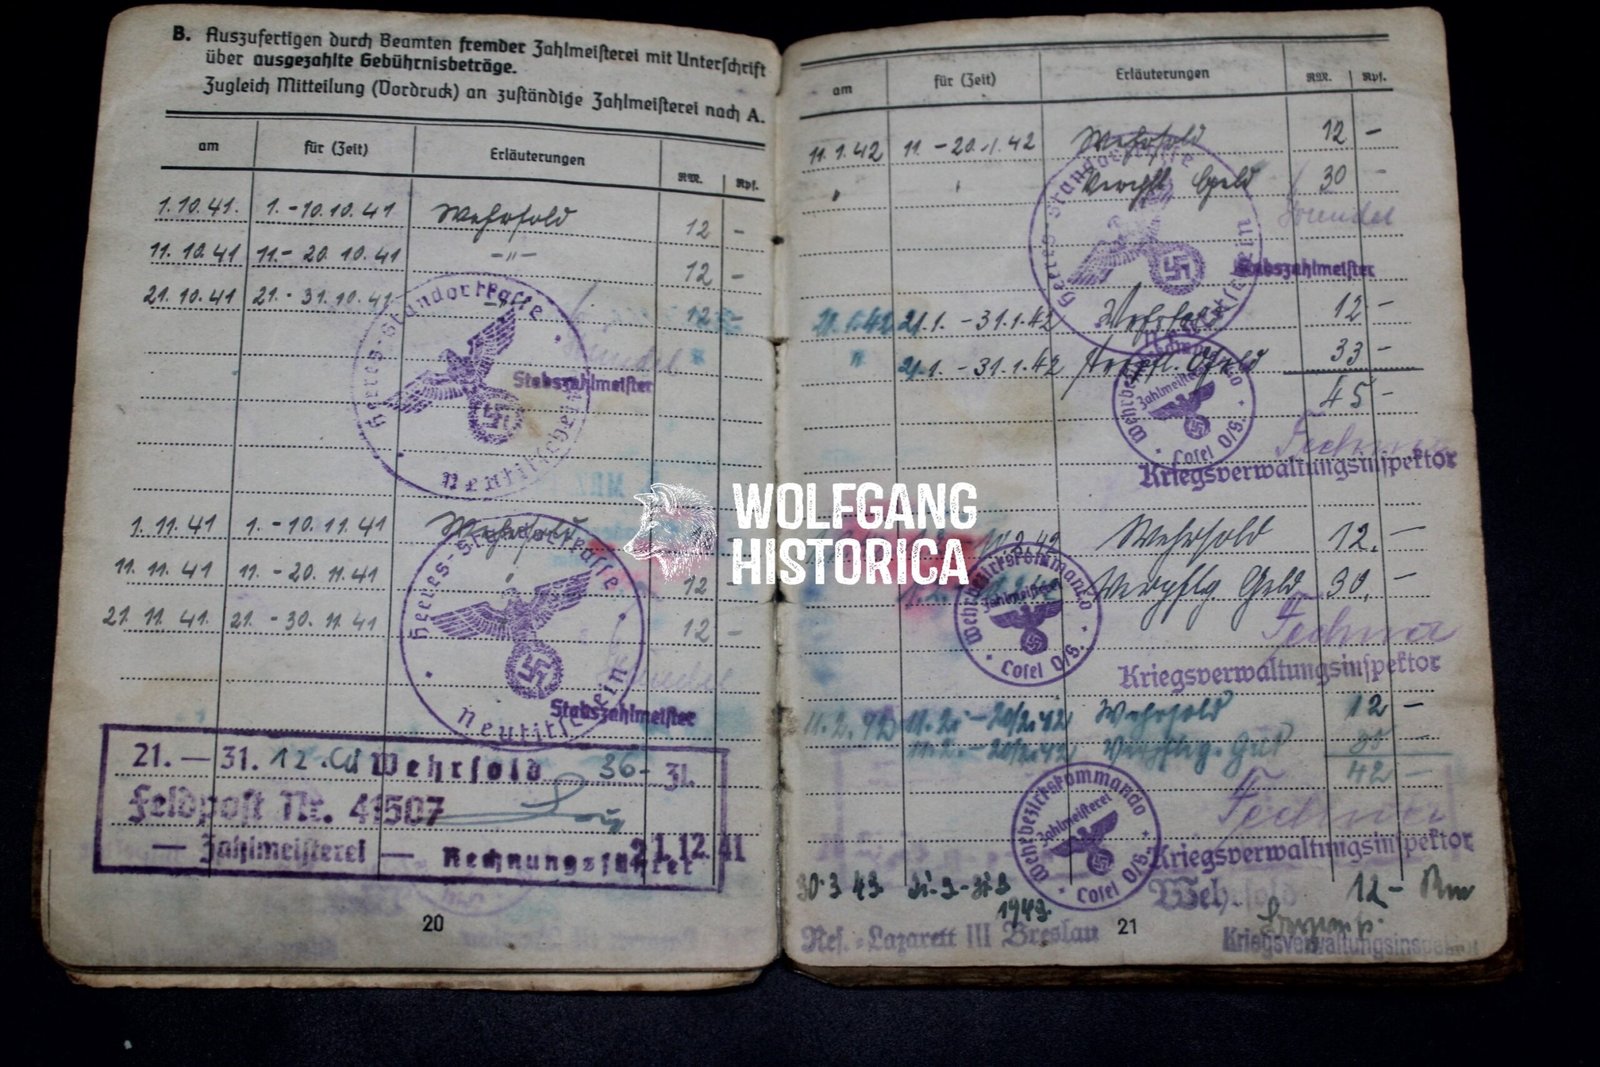 B. Auszufertigen durch Beamten fremder Zahlmeisterei mit Unterschrift
über ausgezahlte Gebührnisbeträge.
Zugleich Mitteilung (Vordruck) an zuständige Zahlmeisterei nach A.
am für (Zeit) Erläuterungen RM. Rpf.
1.10.41. 1.-10.10.41 Wehrsold 12 -
11.10.41 11.-20.10.41 -"- 12 -
21.10.41 21.-31.10.41 -"- 12
Heeres-Standortkasse
Stabszahlmeister
Neutitschein
1.11.41 1.-10.11.41 Wehrsold
11.11.41 11.-20.11.41 12 -
21.11.41. 21.-30.11.41 12 -
Heeres-Standortkasse
Stabszahlmeister
Neutitschein
21.-31.12. Wehrsold 36- 31.
Feldpost Nr. 41507
- Zahlmeisterei - Rechnungsführer 21.12.41
20
am für (Zeit) Erläuterungen RM. Rpf.
11.1.42 11.-20.1.42 Wehrsold 12 -
" " Verpfl. Geld 30 -
Heeres-Standortkasse
Stabszahlmeister
21.1.42 21.1.-31.1.42 Wehrsold 12 -
" 21.1.-31.1.42 Verpfl. Geld 33 -
45 -
Wehrbezirkskommando
Zahlmeisterei
Cosel O/S.
Techner
Kriegsverwaltungsinspektor
Wehrsold 12. -
Verpflg Geld 30. -
Wehrbezirkskommando
Zahlmeisterei
Cosel O/S.
Techner
Kriegsverwaltungsinspektor
11.2.42 11.2.-20/2.42 Wehrsold 12 -
11.2.-20/2.42 Verpflg. Geld 30
42 -
Wehrbezirkskommando
Zahlmeisterei
Cosel O/S.
Techner
Kriegsverwaltungsinspektor
30.3.43 Wehrsold 12-
1943.
Res.-Lazarett III Breslau 21 Kriegsverwaltungsinspektor
WOLFGANG
HISTORICA